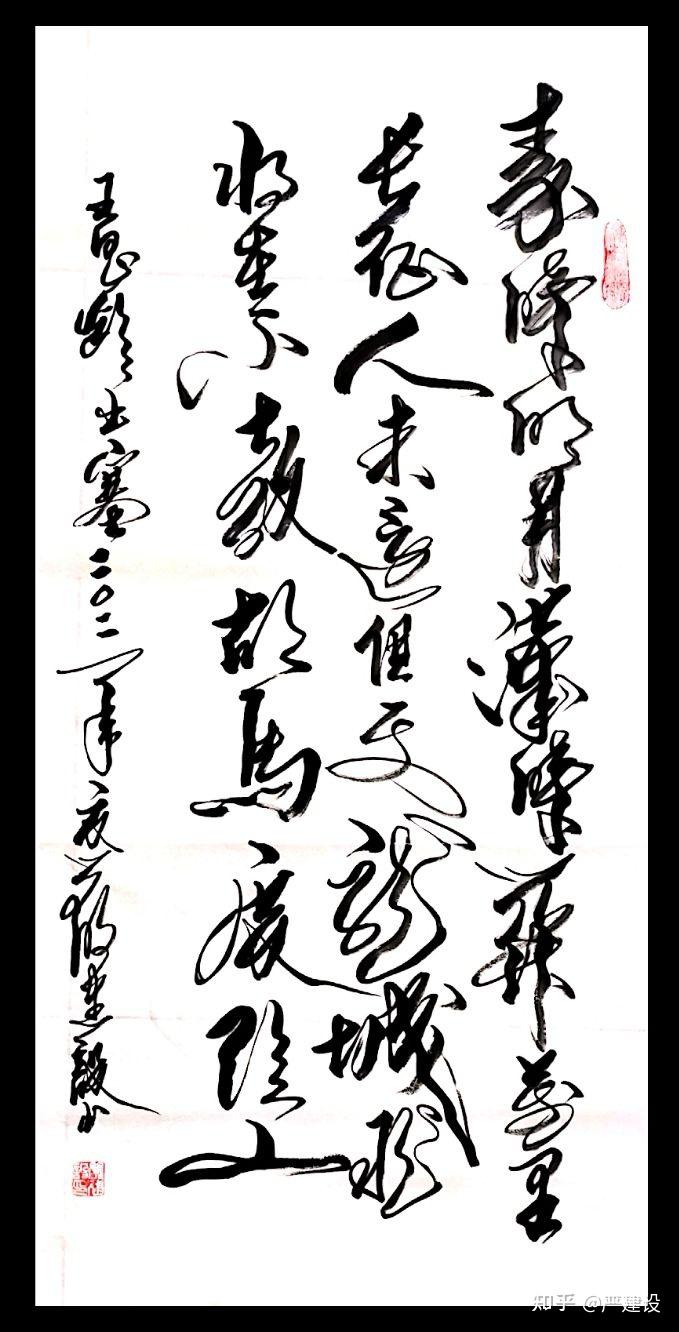 秦時明月漢時關萬里
長征人未還但使龍城飛
將在不教胡馬度陰山
王昌齡出塞二〇二一年書
知乎 @严建设